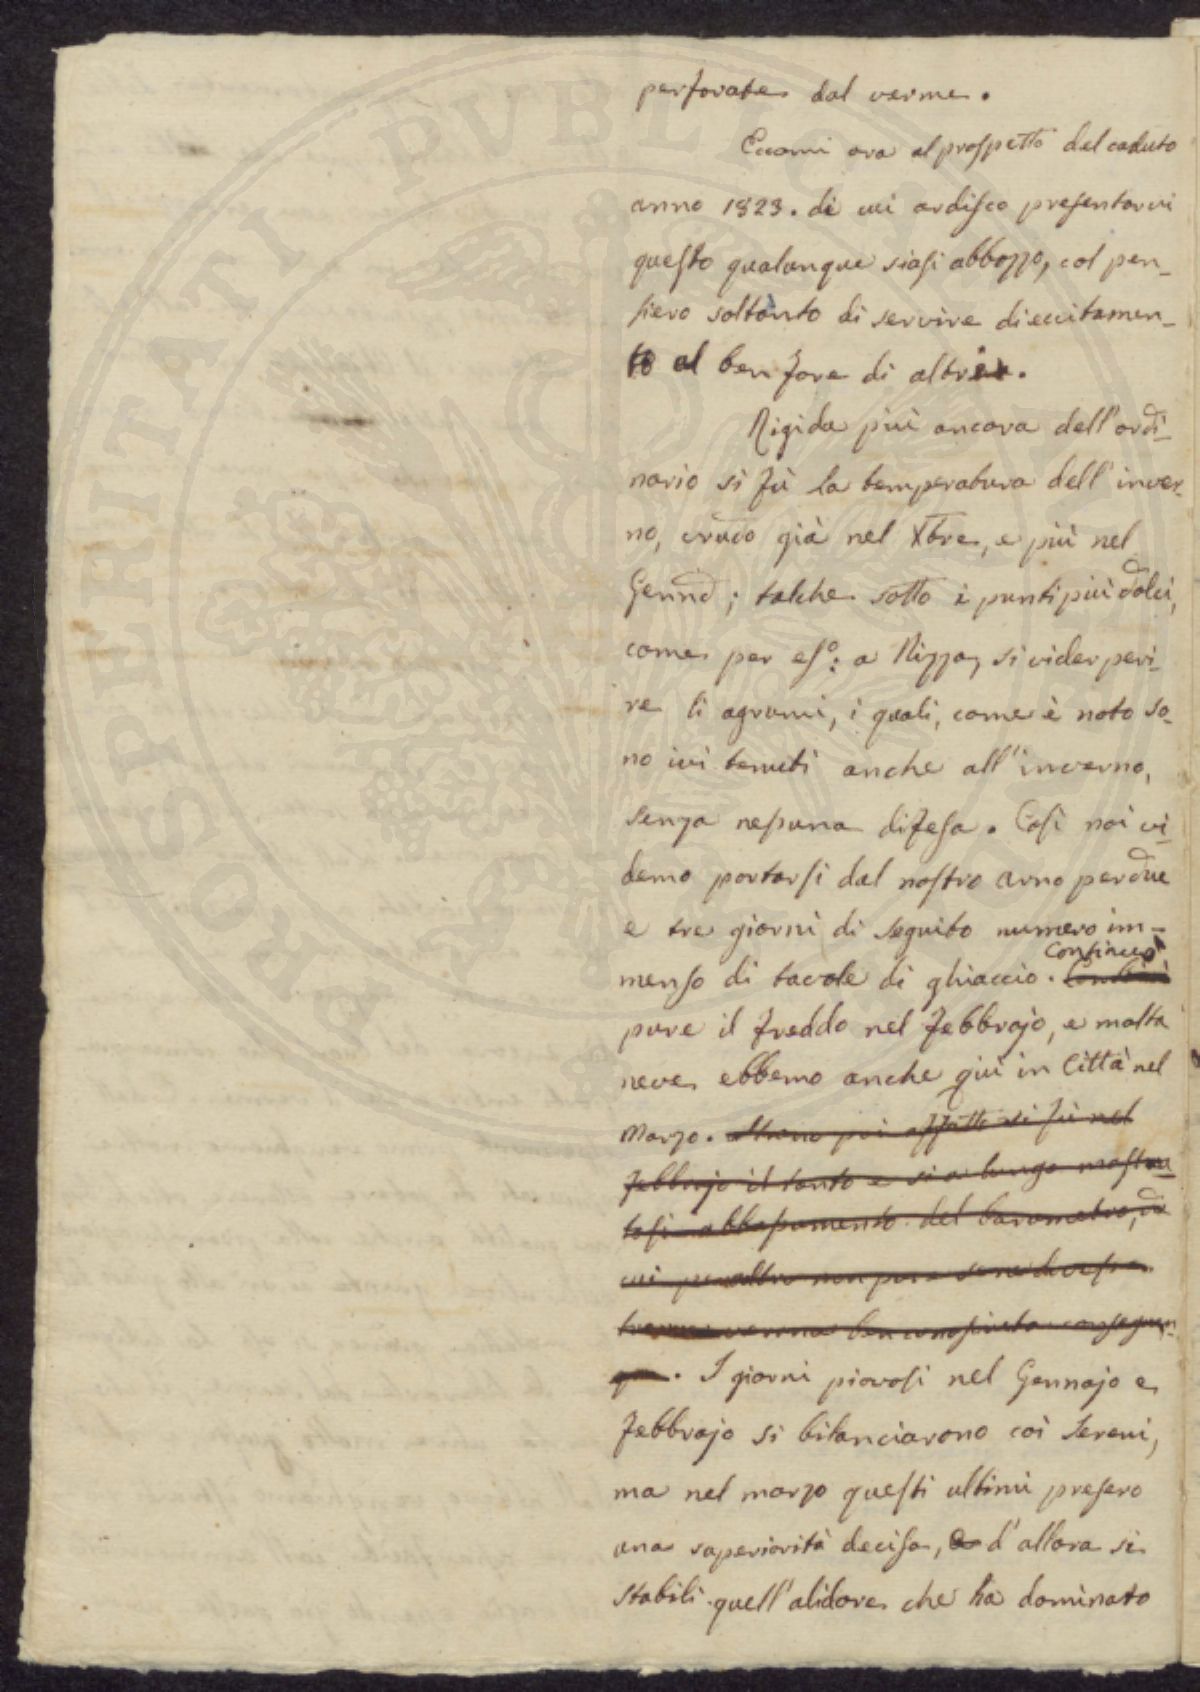 perforate dal verme.
Eccomi ora al prospetto del caduto
anno 1823. di cui ardisco presentarvi
questo qualunque siasi abbozzo, col pen-
siero soltanto di servire di eccitamen-
to al ben fare di altri.
Rigida più ancora dell'ordi-
nario si fù la temperatura dell'inver-
no, crudo già nel Xbre, e più nel
Genn.o; talche sotto i punti più dolci,
come per es.o: a Nizza, si vider peri-
re li agrumi, i quali, come è noto so-
no ivi tenuti anche all'inverno,
senza nessuna difesa. Così noi vi-
demo portarsi dal nostro Arno per due
e tre giorni di seguito numero im-
menso di tavole di ghiaccio. Continuò
pure il freddo nel Febbrajo, e molta
neve ebbemo anche quì in Città nel
Marzo. si fù nel
Febbrajo il tanto e si a lungo mostra-
tosi abbassamento del barometro, di
cui per altro non pare se ne dovesse
trarre veruna ben conosciuta conseguen-
za. I giorni piovosi nel Gennajo e
Febbrajo si bilanciarono coi sereni,
ma nel marzo questi ultimi presero
una superiorità decisa, d'allora si
stabilì quell'alidore che ha dominato
PROSPERITATI PUBLICAE